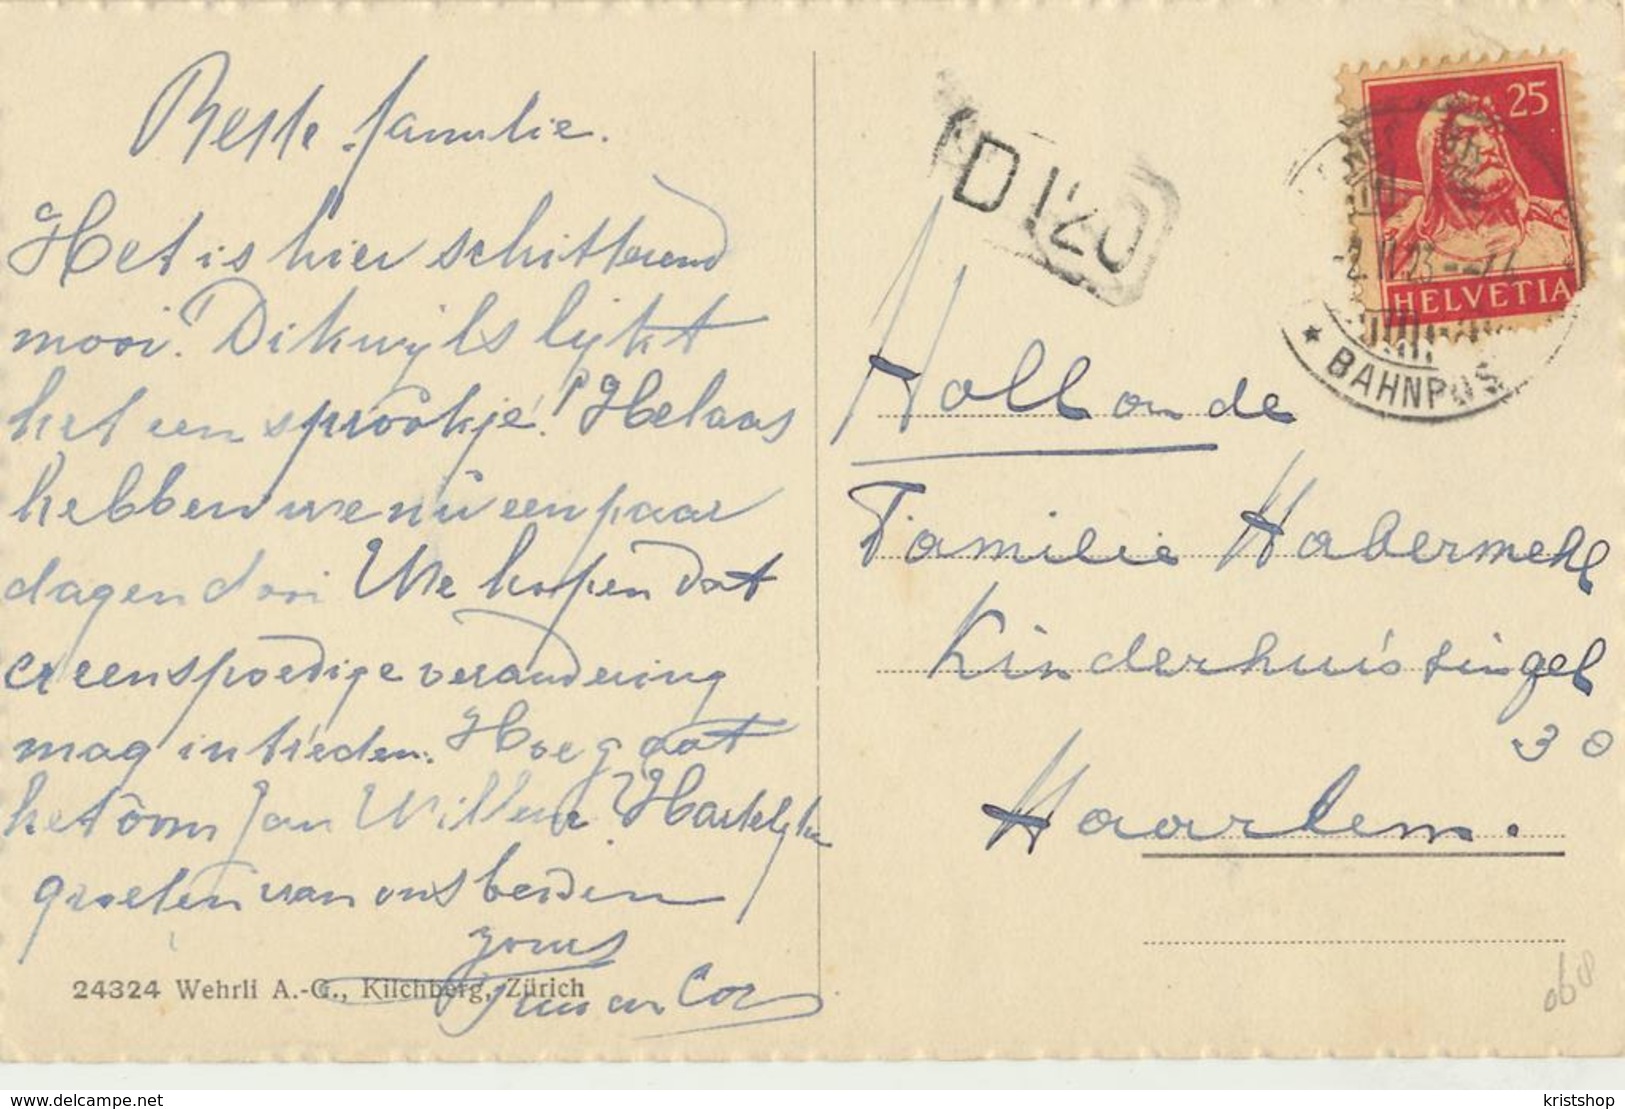 Beste familie.
Het is hier schitterend
mooi. Dikwijls lijkt
het een sprookje! Helaas
hebben we nu een paar
dagen dooi We hopen dat
er een spoedige verandering
mag intreden. Hoe gaat
het oom Jan Willem? Hartelijke
groeten van ons beiden
jours
en Cor
24324 Wehrli A.-G., Kilchberg, Zürich
D 120
25
HELVETIA
BAHNPOS
Hollande
Familie Habermehl
Kinderhuissingel
30
Haarlem.
delcampe.net
kristshop